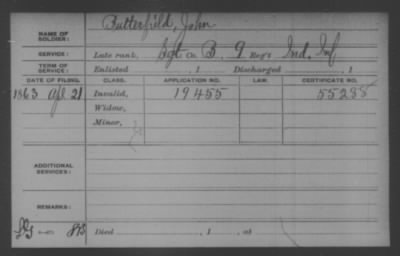 NAME OF SOLDIER: Butterfield, John
SERVICE: Late rank, Sgt Co. B. 9 Reg't Ind. Inf
TERM OF SERVICE: Enlisted , 1 Discharged , 1
DATE OF FILING. CLASS. APPLICATION NO. LAW. CERTIFICATE NO.
1863 Apl 21 Invalid, 19455 55285
Widow,
Minor,
ADDITIONAL SERVICES:
REMARKS:
Died , 1 , at